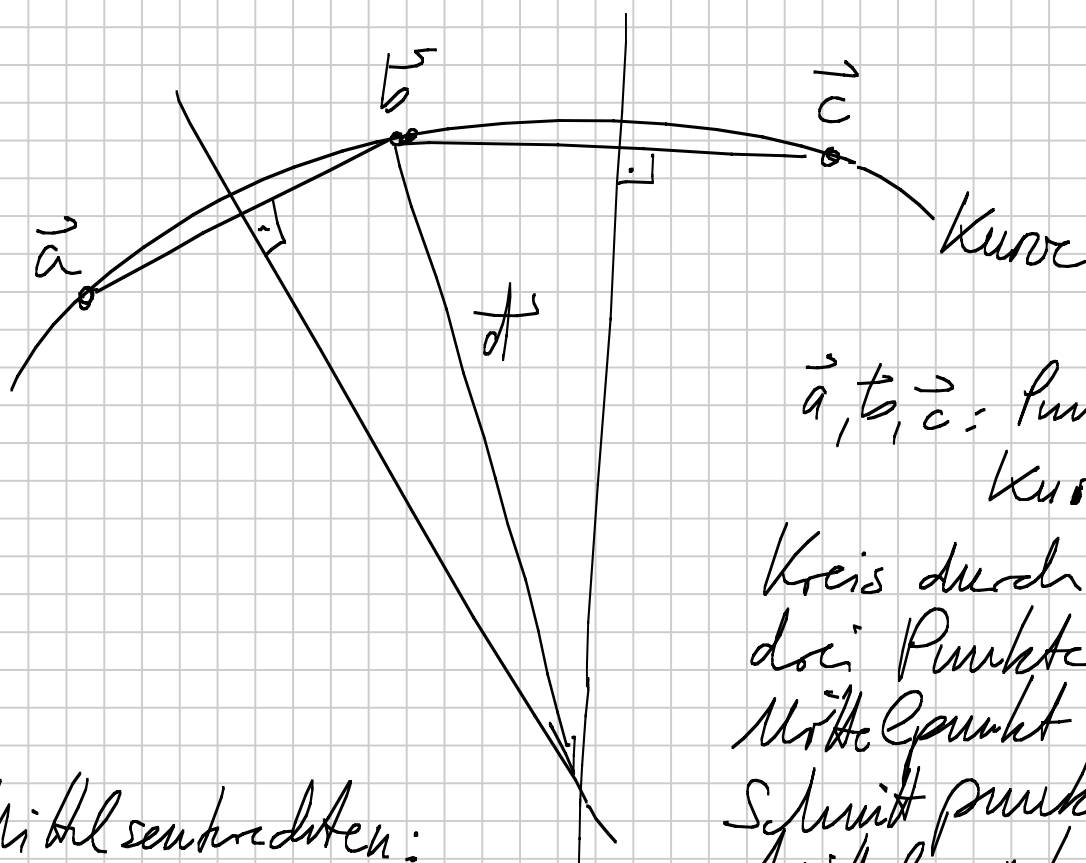 b⃗
c⃗
a⃗
Kurve
d⃗
a⃗, b⃗, c⃗: Pun
Kur
Kreis durch
drei Punkte
Mittelpunkt
Schnittpunk
Mittelsenkrechten: